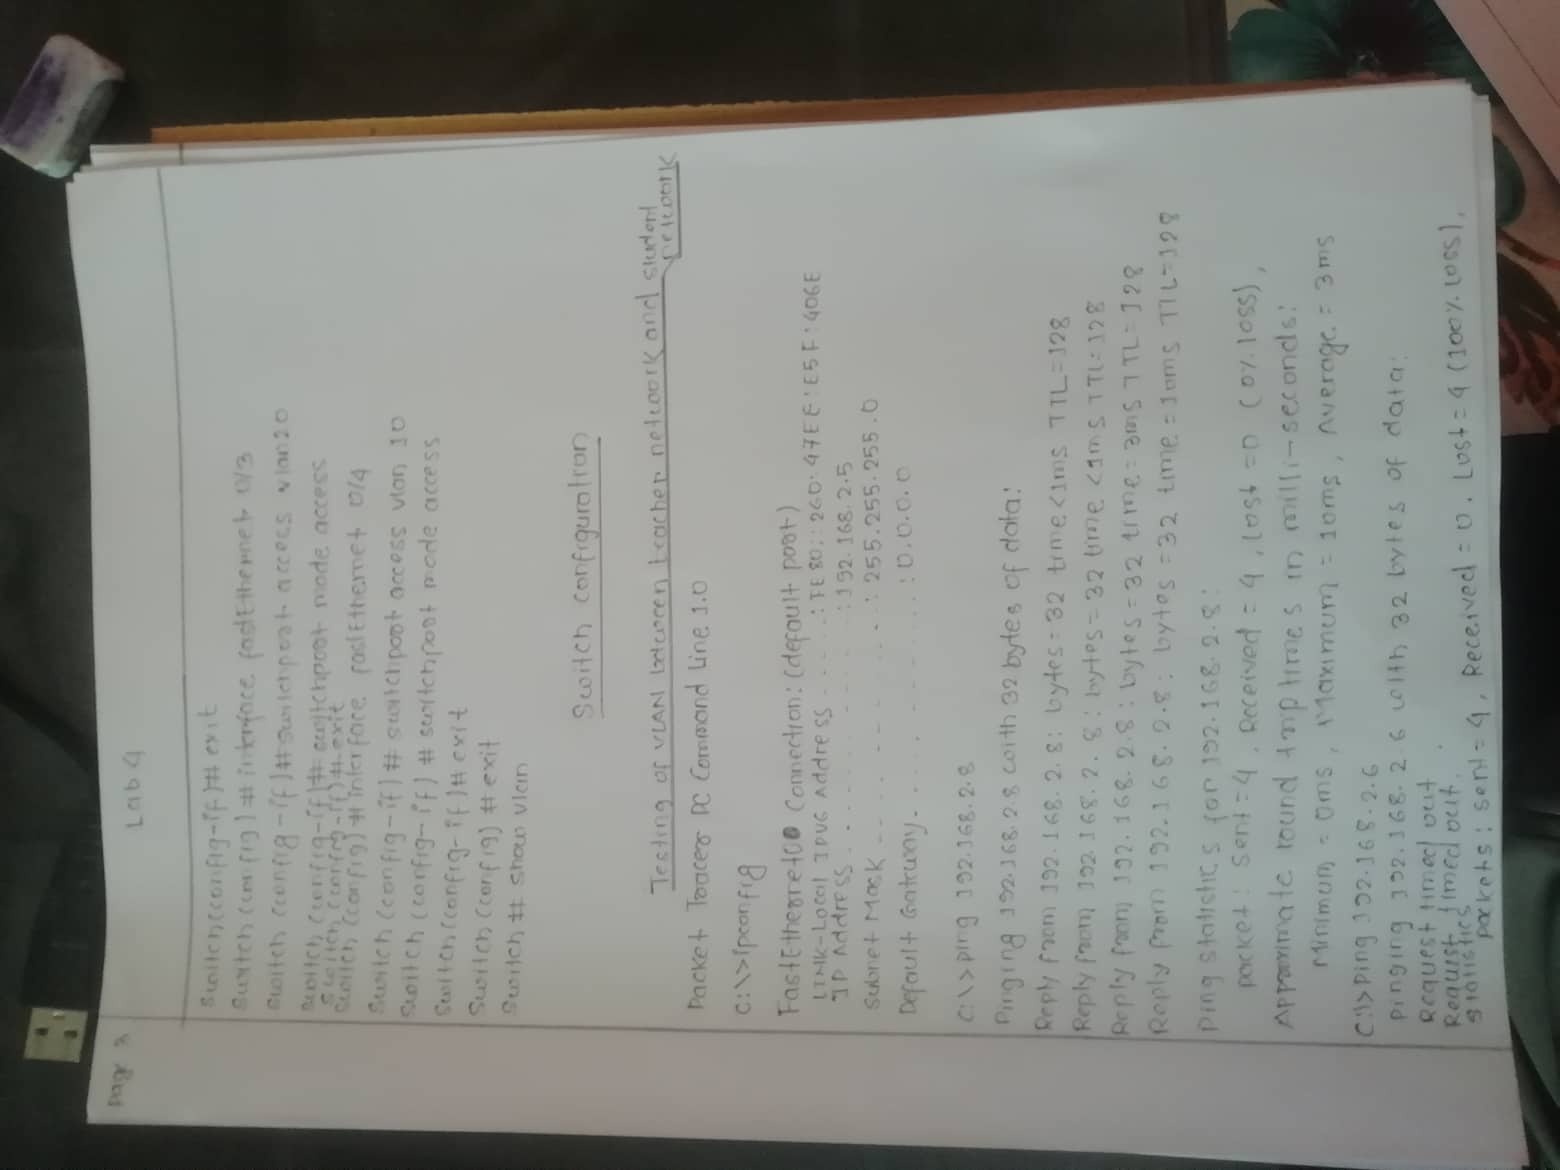 Page 3
Lab 4
Switch (config-if)# exit
Switch (config) # interface fastEthernet 0/3
Switch (config-if)# switchport access vlan 20
Switch (config-if)# switchport mode access
Switch (config-if)# exit
Switch (config) # interface fastEthernet 0/4
Switch (config-if) # switchport access vlan 10
Switch (config-if) # switchport mode access
Switch (config-if)# exit
Switch (config) # exit
Switch # show vlan
Switch configuration
Testing of VLAN between teacher network and student
network
Packet Tracer PC Command Line 1.0
C:\>ipconfig
FastEthernet0 Connection:(default port)
Link-Local IPV6 Address . . . . : FE80::260:47EE:E5F:406E
IP Address . . . . . . . . . : 192.168.2.5
Subnet Mask . . . . . . . : 255.255.255.0
Default Gateway. . . . . . . : 0.0.0.0
C:\>ping 192.168.2.8
Pinging 192.168.2.8 with 32 bytes of data:
Reply from 192.168.2.8: bytes=32 time<1ms TTL=128
Reply from 192.168.2.8: bytes=32 time<1ms TTL=128
Reply from 192.168.2.8: bytes=32 time=3ms TTL=128
Reply from 192.168.2.8: bytes=32 time=10ms TTL=128
Ping statistics for 192.168.2.8:
packet: Sent=4, Received=4, Lost=0 (0% loss),
Approximate round trip times in milli-seconds:
Minimum = 0ms, Maximum = 10ms, Average = 3ms
C:\>ping 192.168.2.6
pinging 192.168.2.6 with 32 bytes of data:
Request timed out.
Request timed out.
statistics
packets: sent=4, Received=0, Lost=4 (100% loss),